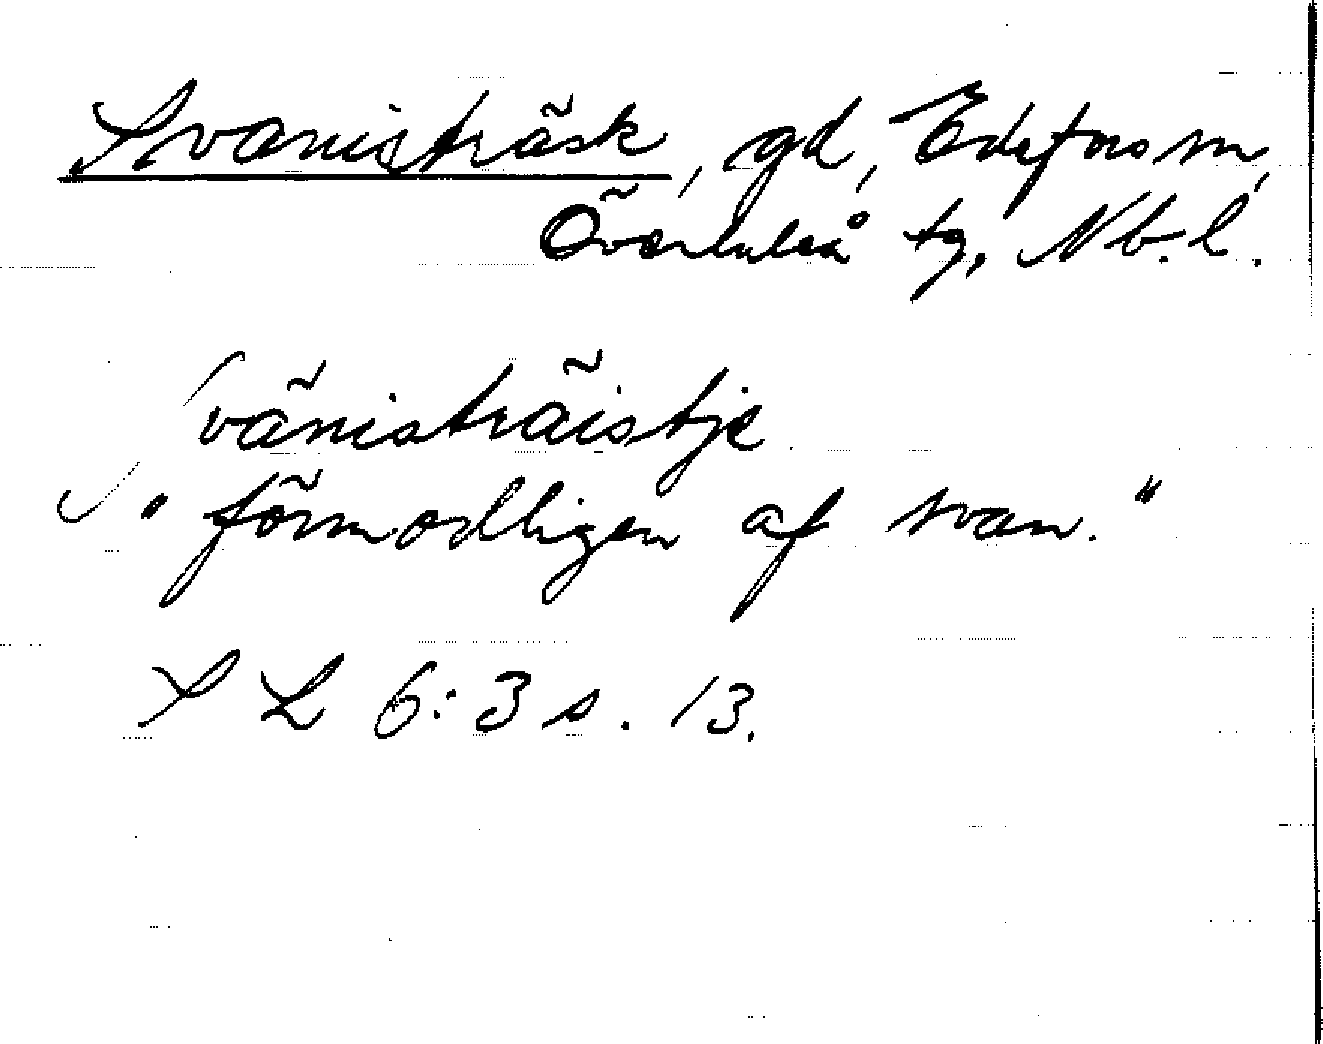 Svanisträsk, gd, Edefors sn,
Överluleå tg, Nb.l.
svänisträistje
"förmodligen af svan."
S L 6:3 s. 13.